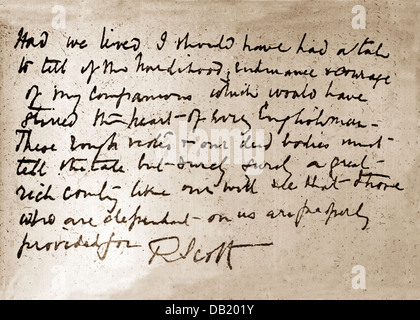 Had we lived I should have had a tale
to tell of the hardihood, endurance & courage
of my companions which would have
stirred the heart of every Englishman -
These rough notes & our dead bodies must
tell the tale but surely surely a great
rich country like ours will see that those
who are dependent on us are properly
provided for R Scott
alamy
Image ID: DB201Y
www.alamy.com